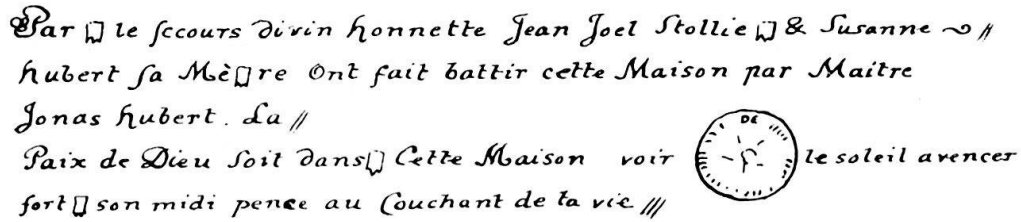 Par le secours divin honnette Jean Joel Stollie & Susanne
hubert sa Mère Ont fait battir cette Maison par Maitre
Jonas hubert. La
Paix de Dieu Soit dans Cette Maison voir DE le soleil avencer
fort son midi pence au Couchant de ta vie